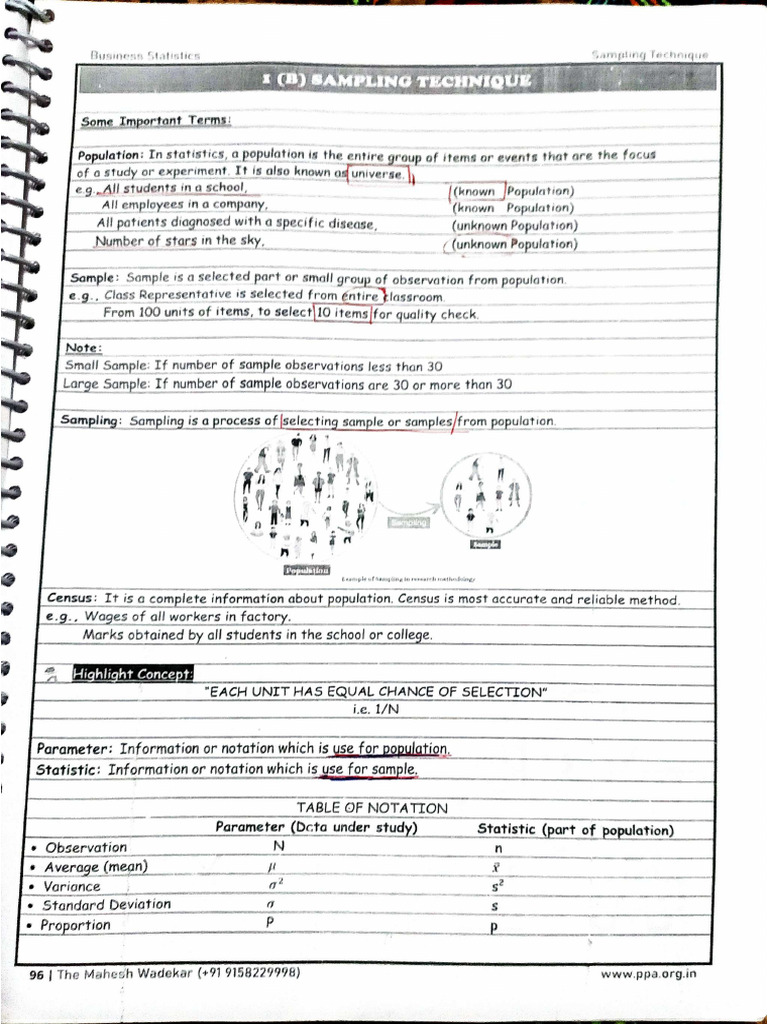 Business Statistics Sampling Technique
1 (B) SAMPLING TECHNIQUE
Some Important Terms:
Population: In statistics, a population is the entire group of items or events that are the focus
of a study or experiment. It is also known as universe.
e.g. All students in a school, (known Population)
All employees in a company, (known Population)
All patients diagnosed with a specific disease, (unknown Population)
Number of stars in the sky, (unknown Population)
Sample: Sample is a selected part or small group of observation from population.
e.g., Class Representative is selected from entire classroom.
From 100 units of items, to select 10 items for quality check.
Note:
Small Sample: If number of sample observations less than 30
Large Sample: If number of sample observations are 30 or more than 30
Sampling: Sampling is a process of selecting sample or samples from population.
Sampling
Sample
Population
Example of Sampling in research methodology
Census: It is a complete information about population. Census is most accurate and reliable method.
e.g., Wages of all workers in factory.
Marks obtained by all students in the school or college.
Highlight Concept:
"EACH UNIT HAS EQUAL CHANCE OF SELECTION"
i.e. 1/N
Parameter: Information or notation which is use for population.
Statistic: Information or notation which is use for sample.
TABLE OF NOTATION
Parameter (Data under study) Statistic (part of population)
• Observation N n
• Average (mean) μ x̄
• Variance σ² s²
• Standard Deviation σ s
• Proportion P p
96 | The Mahesh Wadekar (+91 9158229998) www.ppa.org.in